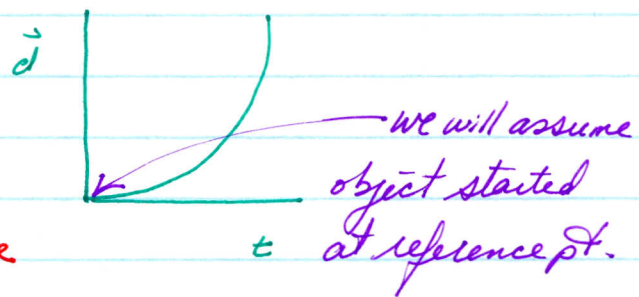 d⃗
we will assume
object started
e t at reference pt.